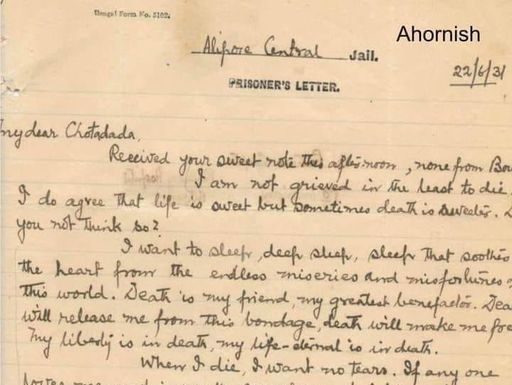 Bengal Form No. 5102.
Ahornish
Alipore Central Jail.
22/6/31
PRISONER'S LETTER.
my dear Chotadada,
Received your sweet note this afternoon, none from Bou
I am not grieved in the least to die.
I do agree that life is sweet but sometimes death is sweeter.
you not think so?
I want to sleep, deep sleep, sleep that soothes
the heart from the endless miseries and misfortunes
this world. Death is my friend, my greatest benefactor. Dea
will release me from this bondage, death will make me free
My liberty is in death, my life-eternal is in death.
When I die, I want no tears. If any one